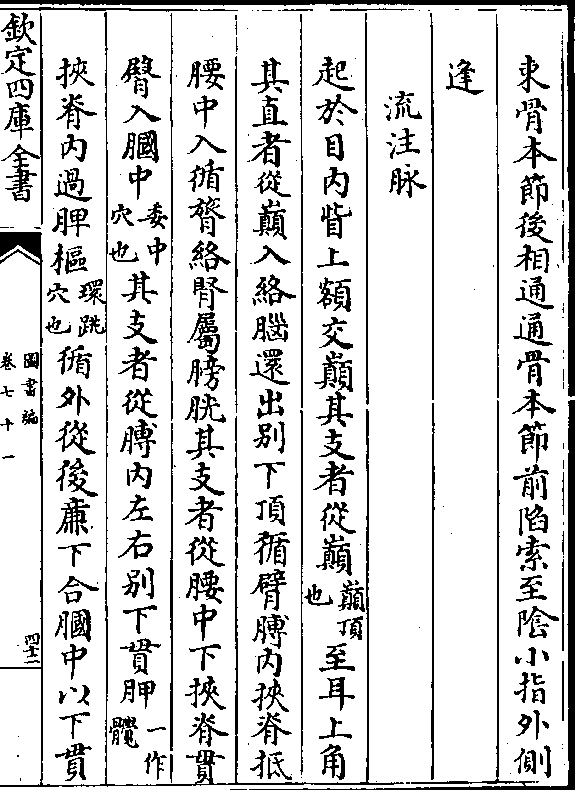 束骨本節後相通通骨本節前陷索至陰小指外側
逢
流注脉
起於目内眥上額交巔其支者從巔巔頂也至耳上角
其直者從巔入絡腦還出别下頂循臂膊内挾脊抵
腰中入循膂絡腎屬膀胱其支者從腰中下挾脊貫
臀入膕中委中穴也其支者從膊内左右别下貫胛一作髖
挾脊内過脾樞環跳穴也循外從後廉下合膕中以下貫
欽定四庫全書
圖書編
卷七十一
四十二